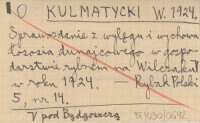 KULMATYCKI W. 1924.
Sprawozdanie z wylęgu i wychowu
łososia dunajcowego w gospo-
darstwie rybnem na Wilczaku
w roku 1924. — Rybak Polski
5, nr. 14.
pod Bydgoszczą